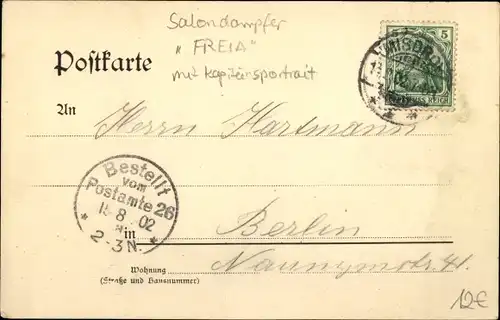 Salondampfer
„FREIA"
mit Kapitänsportrait
Postkarte
5
5
MISDROY
02
REICH
An
Herrn Hartmann
Bestellt
vom
Postamte 26
15 8 02
2-3N.
in
Berlin
Naunynstr. 41.
Wohnung
(Straße und Hausnummer)
12€